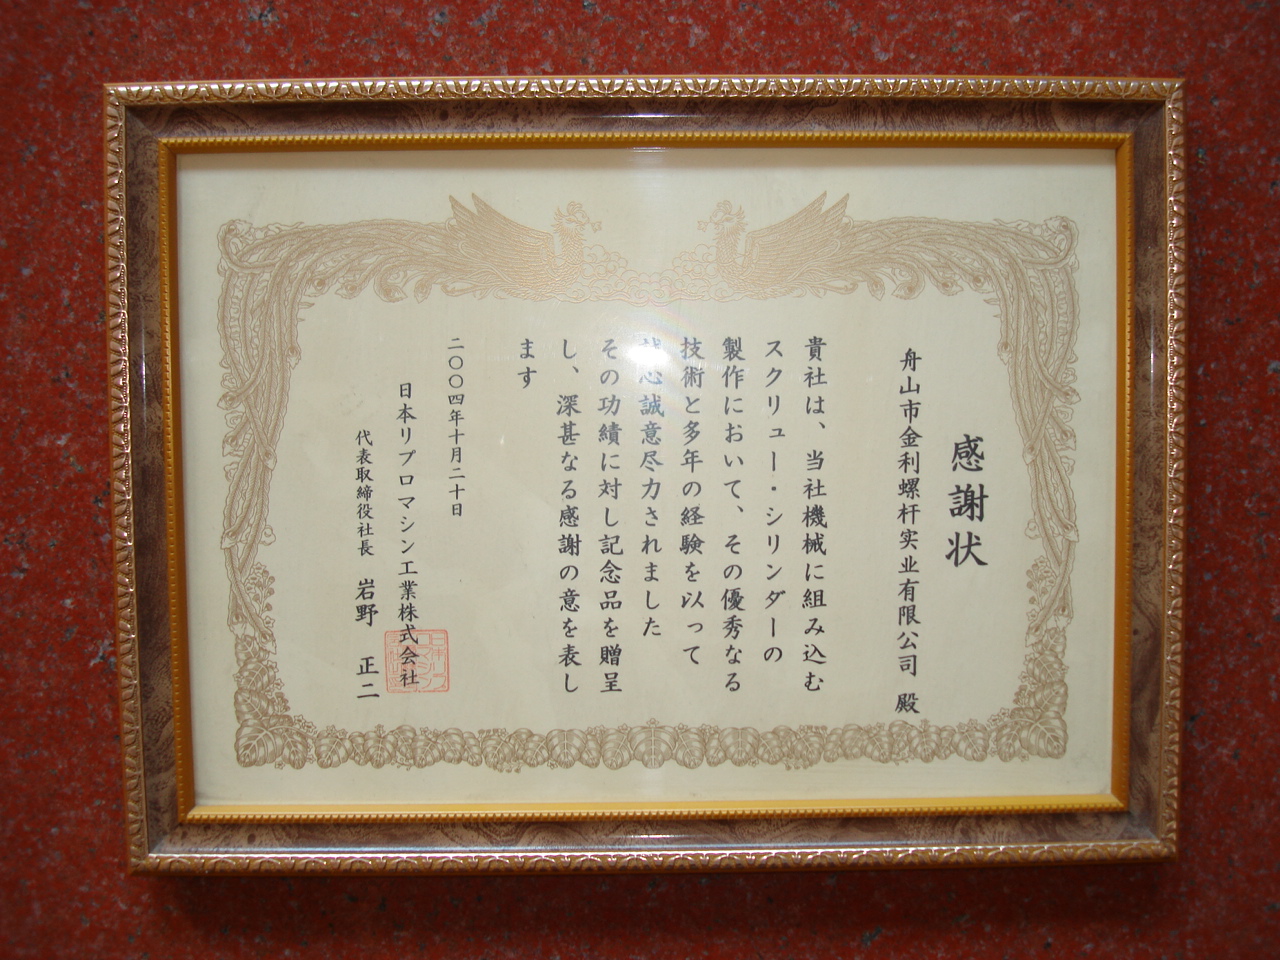 感謝状
舟山市金利螺杆实业有限公司 殿
貴社は、当社機械に組み込む
スクリュー・シリンダーの
製作において、その優秀なる
技術と多年の経験を以って
誠心誠意尽力されました
その功績に対し記念品を贈呈
し、深甚なる感謝の意を表し
ます
二〇〇四年十月二十日
日本リプロマシン工業株式会社
代表取締役社長 岩野 正二